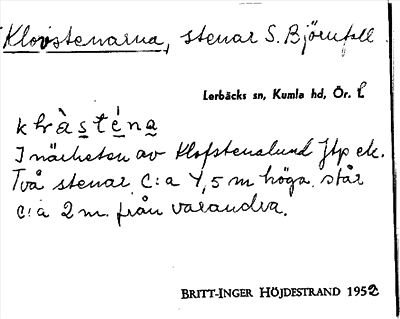 Klovstenarna, stenar S. Björnfall.
Lerbäcks sn, Kumla hd, Ör. l.
I närheten av Klofstenslund Jtp ek.
Två stenar c:a 4,5 m höga, står
c:a 2 m. från varandra.
BRITT-INGER HÖJDESTRAND 1952